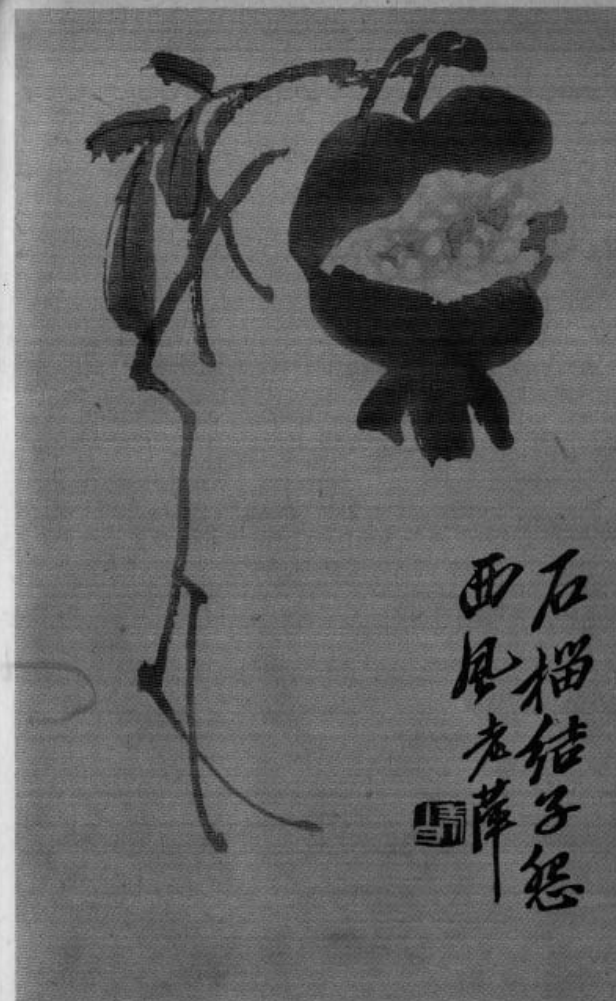 石榴結子怨
西風老萍